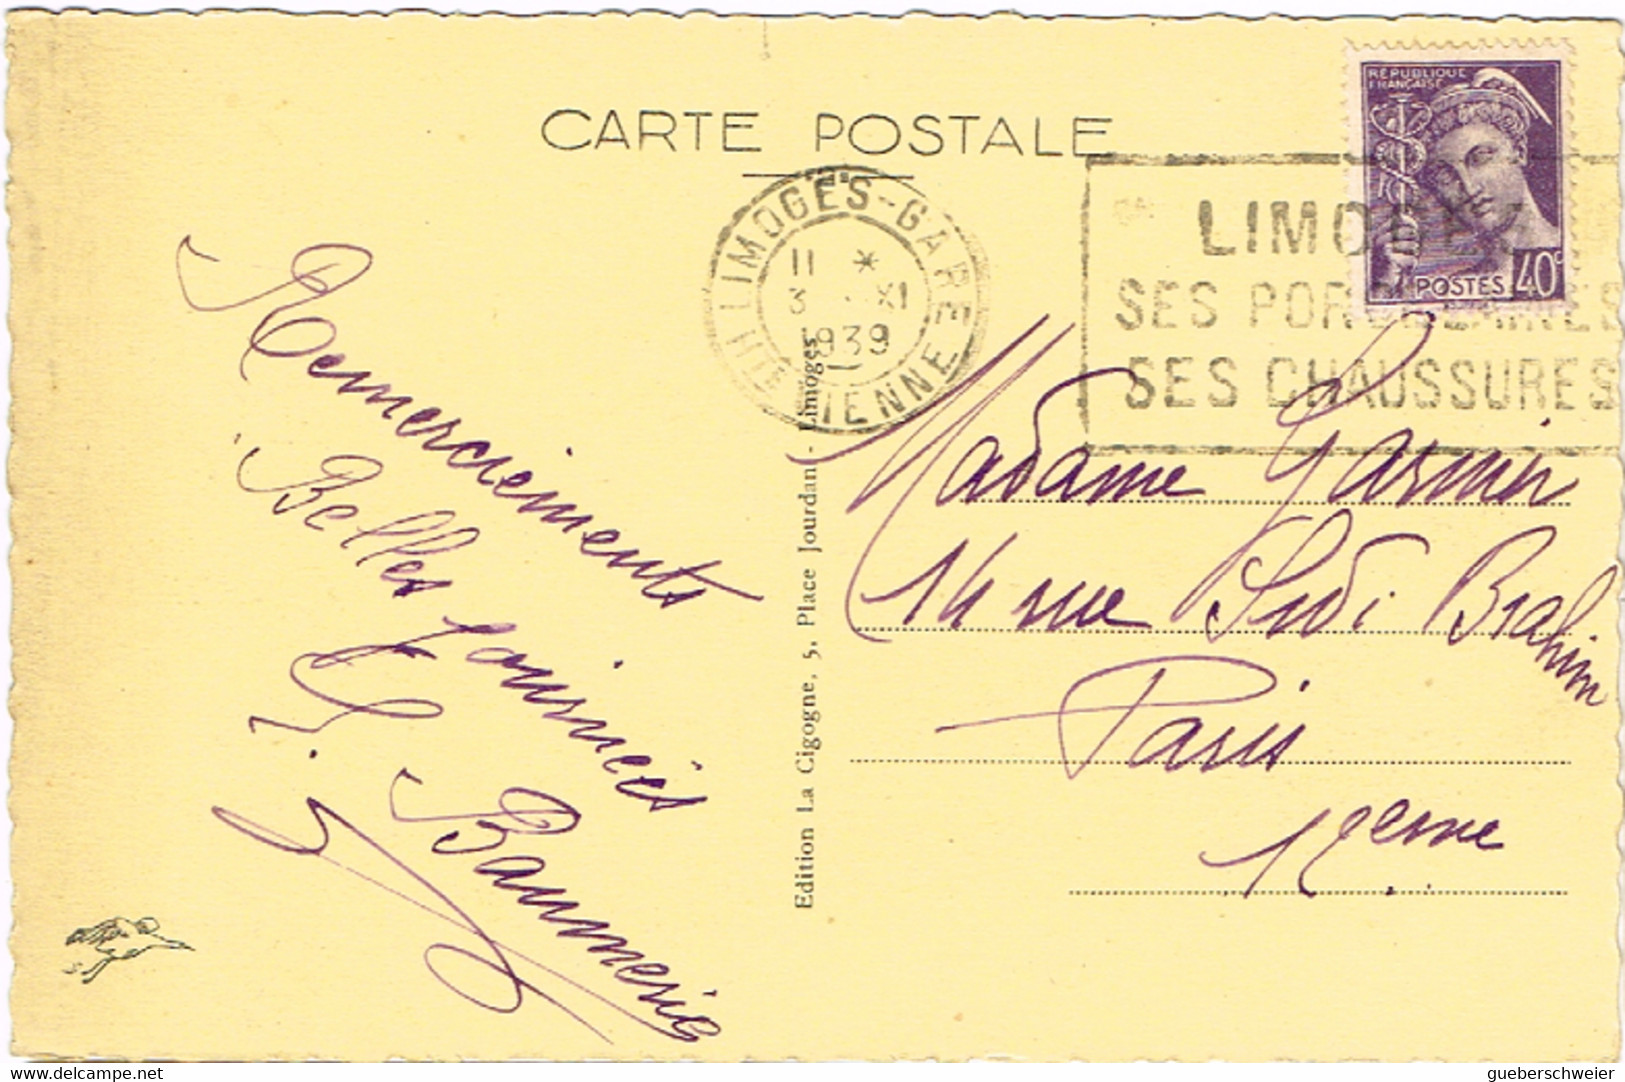 CARTE POSTALE
RÉPUBLIQUE
FRANÇAISE
POSTES 40c
LIMOGES-GARE
11 *
3 XI
1939
HTE VIENNE
LIMOGES
SES PORCELAINES
SES CHAUSSURES
Remerciements
Belles journées
Edition La Cigogne, 5, Place Jourdan - Limoges
Madame Garnier
14 rue Sidi Brahim
Paris
12eme
www.delcampe.net
gueberschweier